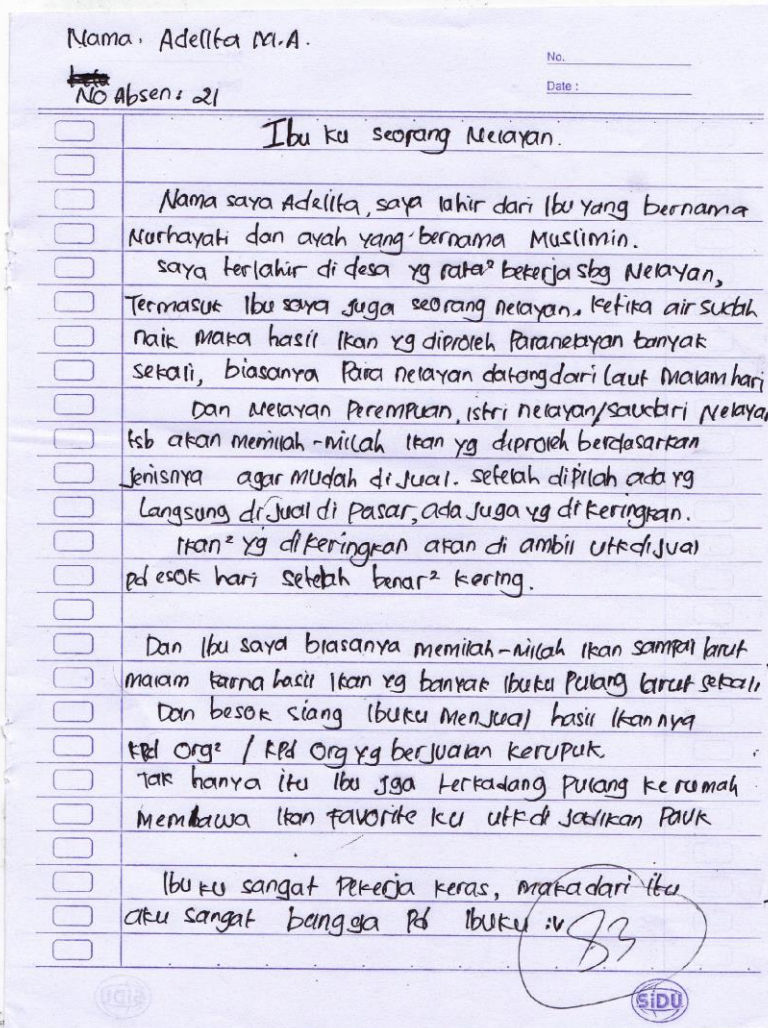 Nama. Adelita M.A.
No.
Date :
No Absen: 21
Ibu ku seorang Nelayan.
Nama saya Adelita, saya lahir dari Ibu yang bernama
Nurhayati dan ayah yang bernama Muslimin.
saya terlahir di desa yg rata² bekerja sbg Nelayan,
Termasuk Ibu saya juga seorang nelayan. ketika air sudah
naik maka hasil Ikan yg diproleh Paranelayan banyak
sekali, biasanya Para nelayan datang dari laut malam hari
Dan Nelayan Perempuan, istri nelayan/saudari Nelayan
tsb akan memilah-milah Ikan yg diproleh berdasarkan
jenisnya agar mudah di jual. setelah dipilah ada yg
Langsung di jual di pasar, ada juga yg di keringkan.
Ikan² yg di keringkan akan di ambil utk dijual
pd esok hari setelah benar² kering.
Dan Ibu saya biasanya memilah-milah Ikan sampai larut
malam karna hasil Ikan yg banyak Ibuku Pulang larut sekali
Dan besok siang Ibuku menjual hasil Ikannya
kpd org² / kpd org yg berjualan kerupuk
Tak hanya itu Ibu jga terkadang pulang ke rumah
Membawa Ikan favorite ku utk di jadikan Pauk
Ibu ku sangat Pekerja keras, maka dari itu
aku sangat bangga Pd Ibuku :v
83
SiDU
SiDU